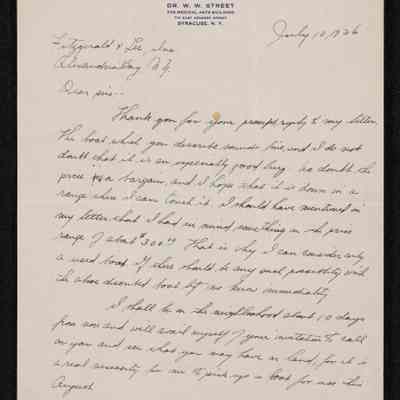 DR. W. W. STREET
706 MEDICAL ARTS BUILDING
713 EAST GENESEE STREET
SYRACUSE, N. Y.
July 10, 1926
Fitzgerald & Lee, Inc
Alexandria Bay N.Y.
Dear sirs--
Thank you for your prompt reply to my letter.
The boat which you describe sounds fine and I do not
doubt that it is an especially good buy. No doubt the
price is a bargain, and I hope that it is down in a
range where I can touch it. I should have mentioned in
my letter that I had in mind something in the price
range of about $300.00 That is why I can consider only
a used boat. If there should be any possibility with
the above described boat let me know immediately.
I shall be in the neighborhood about 10 days
from now and will avail myself of your invitation to call
on you and see what you may have on hand, for it is
a real necessity for me to pick up a boat for use this
August